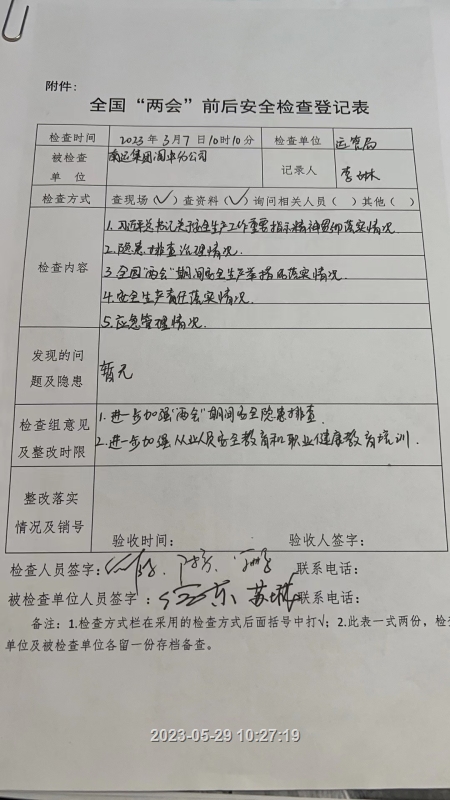 附件：
全国“两会”前后安全检查登记表
检查时间 2023年3月7日10时10分 检查单位 运管局
被检查单 位 南运集团阆中分公司 记录人 李琳
检查方式 查现场（√）查资料（√）询问相关人员（ ）其他（ ）
检查内容
1.习近平总书记关于安全生产工作重要指示精神贯彻落实情况.
2.隐患排查治理情况.
3.全国“两会”期间安全生产举措及落实情况.
4.安全生产责任落实情况.
5.应急管理情况.
发现的问
题及隐患
暂无
检查组意见
及整改时限
1.进一步加强“两会”期间安全隐患排查.
2.进一步加强从业人员安全教育和职业健康教育培训.
整改落实
情况及销号
验收时间： 验收人签字：
检查人员签字： 联系电话：
被检查单位人员签字： 联系电话：
备注：1.检查方式栏在采用的检查方式后面括号中打√；2.此表一式两份，检
单位及被检查单位各留一份存档备查。
2023-05-29 10:27:19